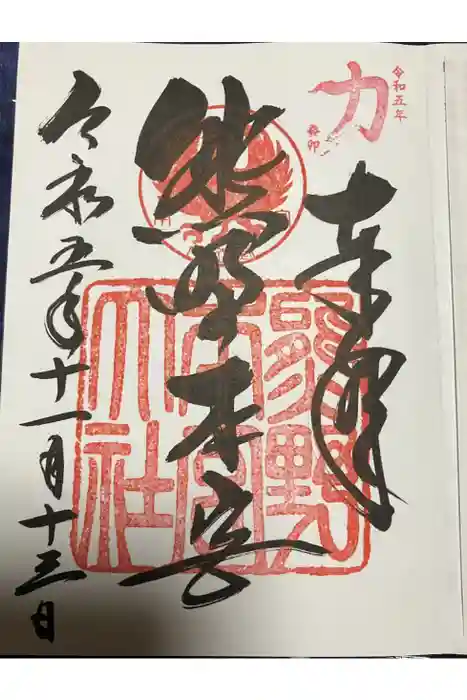 力
令和五年
癸卯
奉拝
熊野本宮
熊野
本宮
大社
令和五年十一月十三日